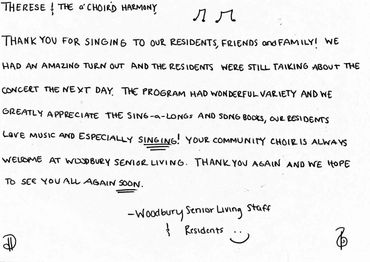 THERESE & THE A'CHOIR'D HARMONY
THANK YOU FOR SINGING TO OUR RESIDENTS, FRIENDS and FAMILY! WE
HAD AN AMAZING TURN OUT AND THE RESIDENTS WERE STILL TALKING ABOUT THE
CONCERT THE NEXT DAY. THE PROGRAM HAD WONDERFUL VARIETY AND WE
GREATLY APPRECIATE THE SING-a-LONGS AND SONG BOOKS, OUR RESIDENTS
LOVE MUSIC AND ESPECIALLY SINGING! YOUR COMMUNITY CHOIR IS ALWAYS
WELCOME AT WOODBURY SENIOR LIVING. THANK YOU AGAIN AND WE HOPE
TO SEE YOU ALL AGAIN SOON.
-Woodbury Senior Living Staff
& Residents